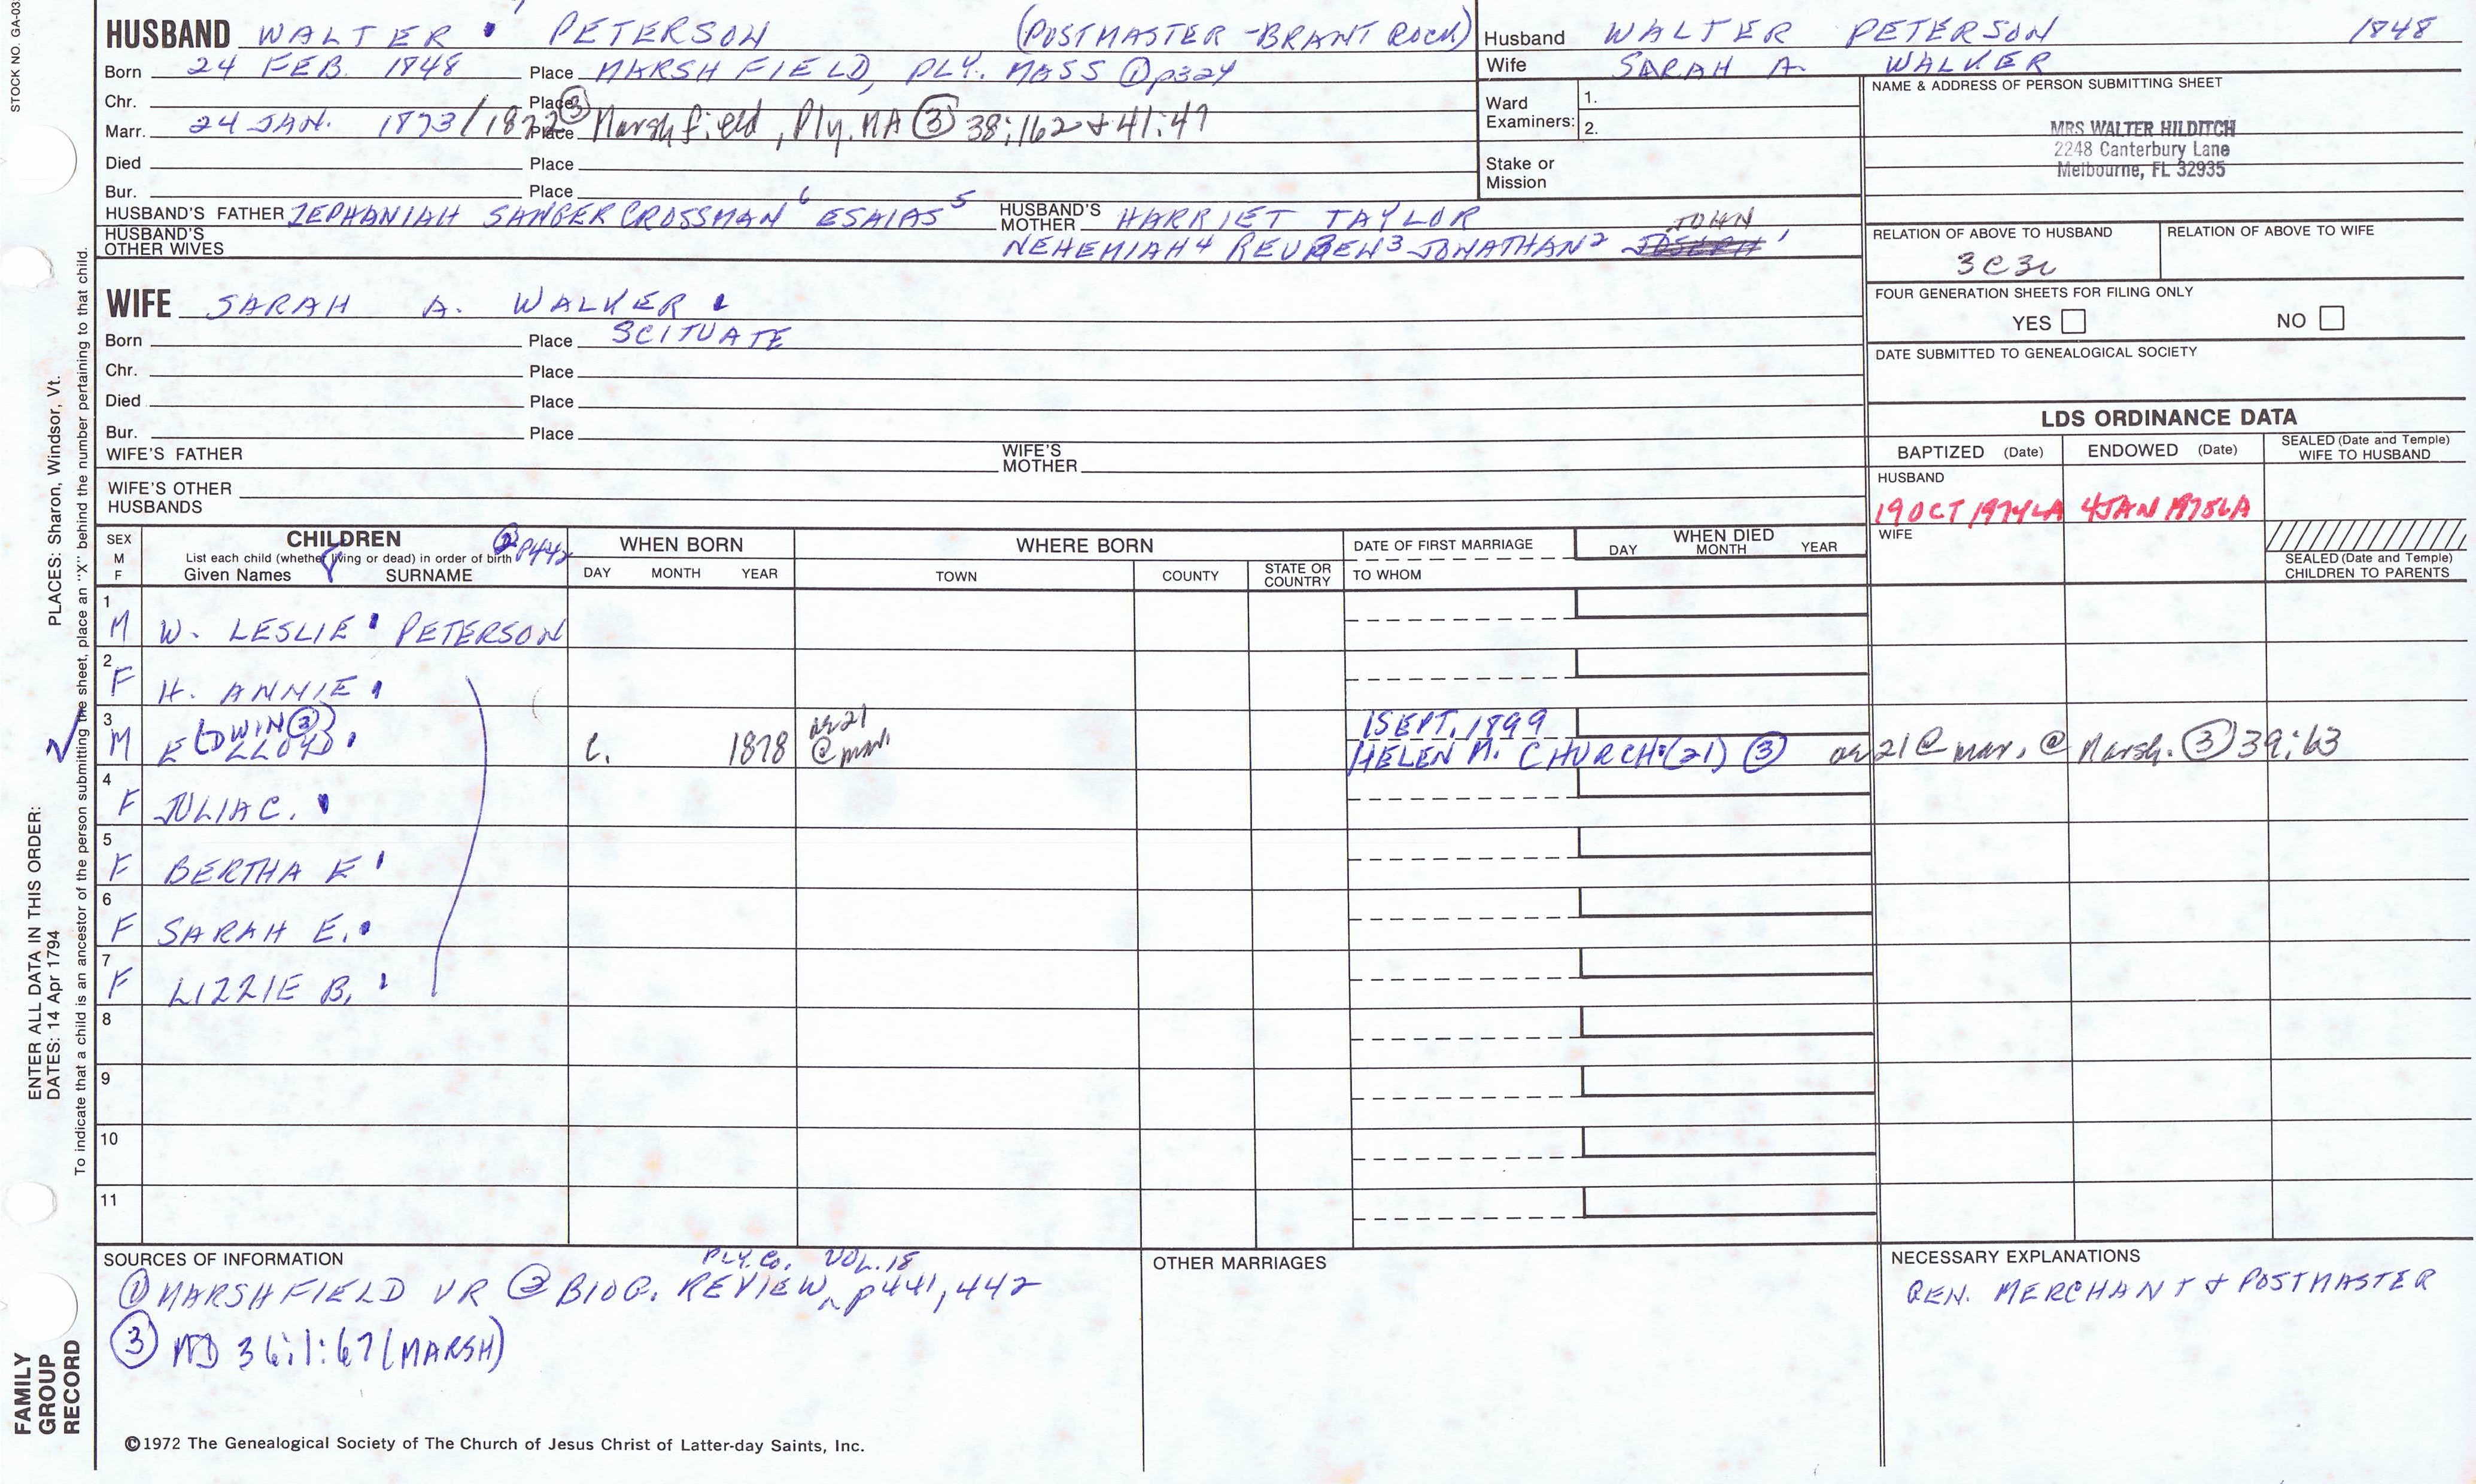 STOCK NO. GA-03
HUSBAND WALTER PETERSON (POSTMASTER - BRANT ROCK)
Born 24 FEB. 1848 Place MARSHFIELD, PLY. MASS ① p324
Chr. Place
Marr. 24 JAN. 1873/1872 ③ Place Marshfield, Ply. MA ③ 38:162 + 41:47
Died Place
Bur. Place
HUSBAND'S FATHER ZEPHANIAH SANGER CROSSMAN 6 ESAIAS 5 HUSBAND'S MOTHER HARRIET TAYLOR
HUSBAND'S OTHER WIVES NEHEMIAH 4 REUBEN 3 JONATHAN 2 JOSEPH JOHN 1
Husband WALTER PETERSON 1848
Wife SARAH A. WALKER
Ward Examiners: 1.
2.
Stake or Mission
NAME & ADDRESS OF PERSON SUBMITTING SHEET
MRS WALTER HILDITCH
2248 Canterbury Lane
Melbourne, FL 32935
RELATION OF ABOVE TO HUSBAND RELATION OF ABOVE TO WIFE
FOUR GENERATION SHEETS FOR FILING ONLY
YES NO
DATE SUBMITTED TO GENEALOGICAL SOCIETY
WIFE SARAH A. WALKER
Born Place SCITUATE
Chr. Place
Died Place
Bur. Place
WIFE'S FATHER WIFE'S MOTHER
WIFE'S OTHER HUSBANDS
LDS ORDINANCE DATA
BAPTIZED (Date) ENDOWED (Date) SEALED (Date and Temple) WIFE TO HUSBAND
HUSBAND
19 OCT 1974 LA 4 JAN 1975 LA
WIFE
SEALED (Date and Temple) CHILDREN TO PARENTS
SEX M F CHILDREN ② p442 WHEN BORN WHERE BORN DATE OF FIRST MARRIAGE WHEN DIED
List each child (whether living or dead) in order of birth
Given Names SURNAME DAY MONTH YEAR TOWN COUNTY STATE OR COUNTRY TO WHOM DAY MONTH YEAR
1 M W. LESLIE PETERSON
2 F H. ANNIE
3 M E (DWIN ③) LLOYD C. 1878 ae 21 @ mar. 1 SEPT. 1899
HELEN M. CHURCH (21) ③ ae 21 @ mar. @ Marsh. ③ 39:63
4 F JULIA C.
5 F BERTHA E
6 F SARAH E.
7 F LIZZIE B.
8
9
10
11
SOURCES OF INFORMATION
① MARSHFIELD VR ② BIOG. REVIEW PLY. Co. VOL. 18 p441, 442
③ MD 36:1:67 (MARSH)
OTHER MARRIAGES
NECESSARY EXPLANATIONS
GEN. MERCHANT & POSTMASTER
©1972 The Genealogical Society of The Church of Jesus Christ of Latter-day Saints, Inc.
FAMILY GROUP RECORD
ENTER ALL DATA IN THIS ORDER:
DATES: 14 Apr 1794 PLACES: Sharon, Windsor, Vt.
To indicate that a child is an ancestor of the person submitting the sheet, place an "X" behind the number pertaining to that child.